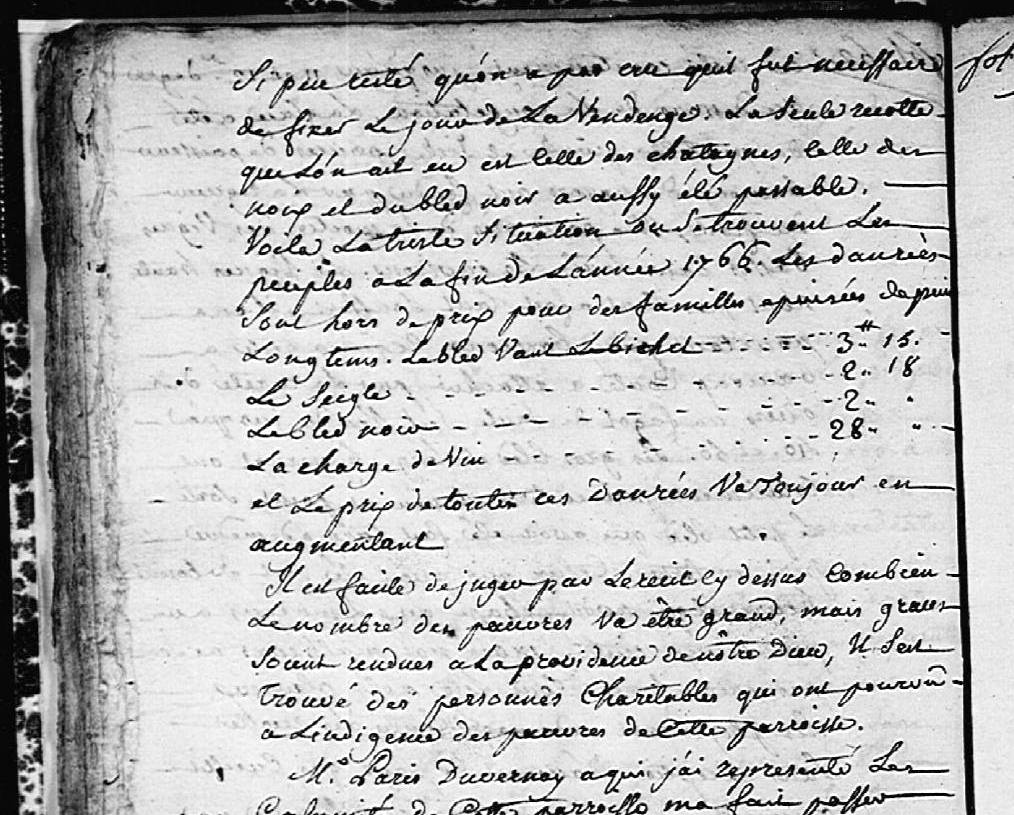 Si peu resté quon a pas cru quil fut necessaire
de fixer Le jour de La Vendenge. La Seule recolte
que L'on ait eu est Celle des chataignes, Celle des
noix et du bled noir a aussy été passable.
Voila La triste Situation ou Se trouvent Les
peuples a La fin de L'année 1766. Les danrèes
Sont hors de prix pour des familles epuisées depuis
Longtems. Le bled Vaut Le bichet 3.# 15.
Le Seigle 2.. 18
Le bled noir 2..
La charge de Vin 28..
et Le prix de toutes ces Danrées Va Toujour en
augmentant
Il est facile de juger par Le recit cy dessus Combien
Le nombre des pauvres Va être grand, mais graces
Soient rendues a La providence de nôtre Dieu, Il S'est
Trouvé des personnes Charitables qui ont pourvû
a L'indigence des pauvres de Cette parroisse.
M.r Paris Duvernay a qui j'ai representé Les
de Cette parroisse ma fait passer